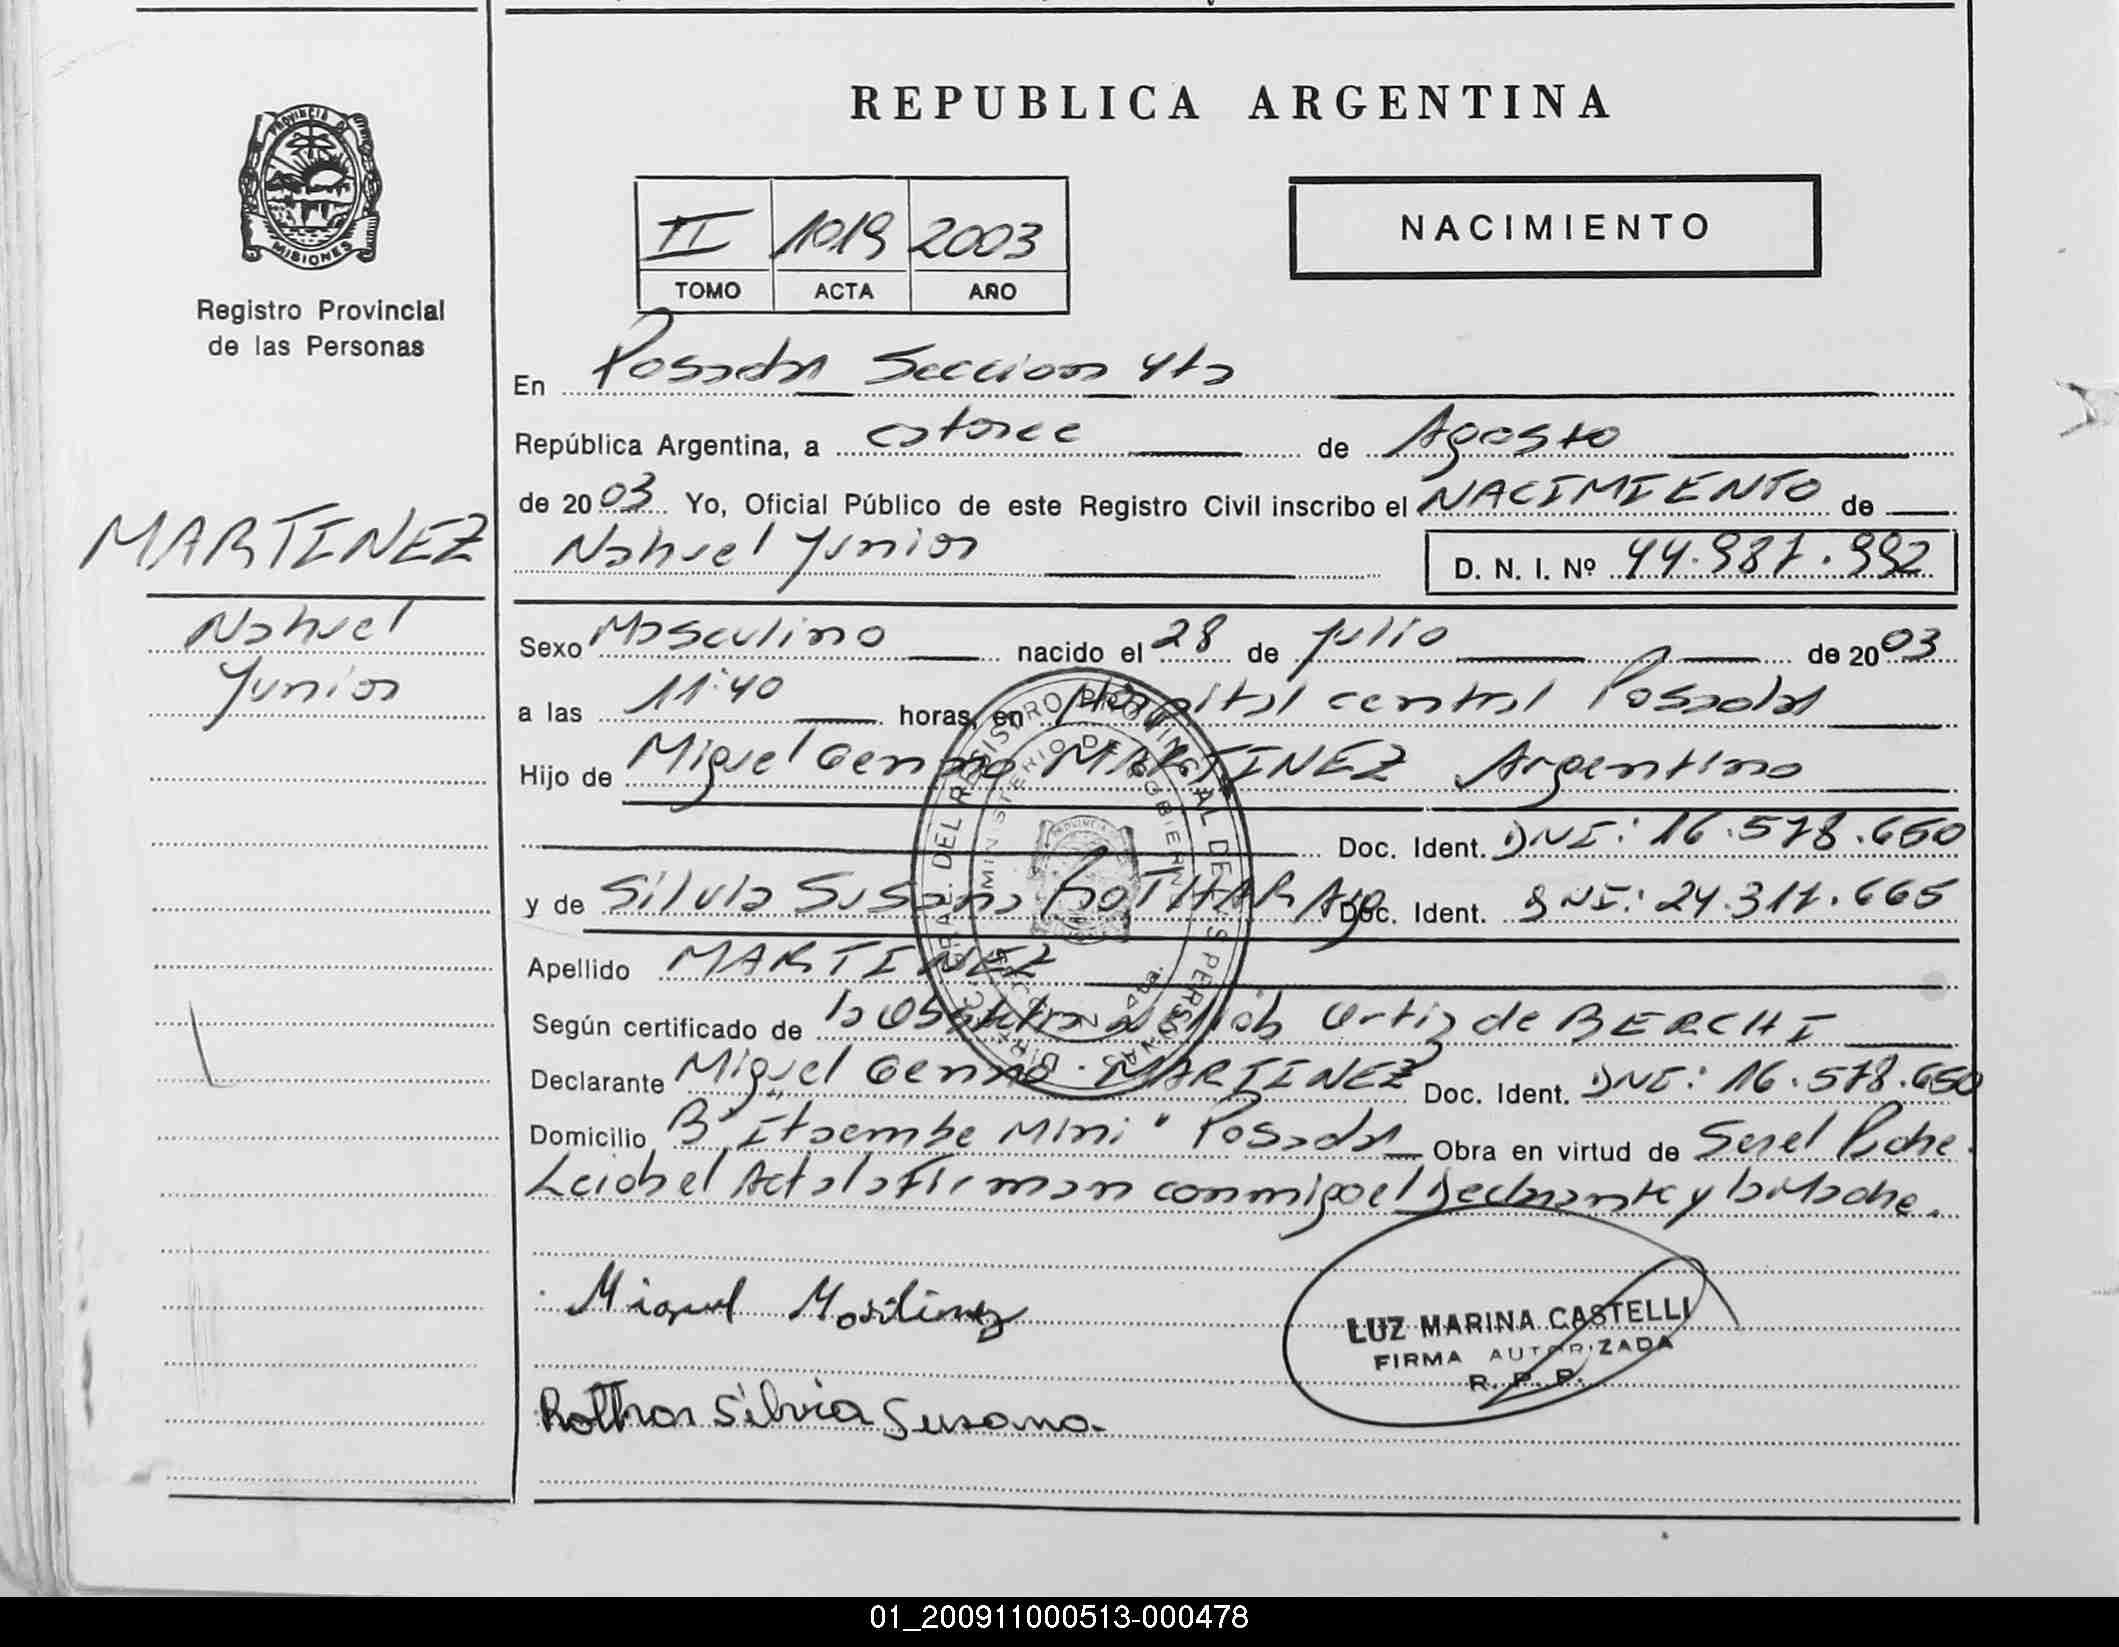 REPUBLICA ARGENTINA
PROVINCIA DE
MISIONES
Registro Provincial
de las Personas
II 1019 2003
TOMO ACTA AÑO
NACIMIENTO
En Posadas Seccion 4ta
República Argentina, a catorce de Agosto
de 2003 Yo, Oficial Público de este Registro Civil inscribo el NACIMIENTO de
Nahuel Junior D. N. I. Nº 44.987.992
MARTINEZ
Nahuel
Junior
Sexo Masculino nacido el 28 de julio de 2003
a las 11:40 horas, en Hospital central Posadas
Hijo de Miguel MARTINEZ Argentino
Doc. Ident. DNI: 16.578.650
y de Silvia Susana Doc. Ident. DNI: 24.311.665
Apellido MARTINEZ
Según certificado de la Obstetra Ortiz de BERCHI
Declarante Miguel MARTINEZ Doc. Ident. DNI: 16.578.650
Domicilio B° "Itaembe Mini" Posadas Obra en virtud de Ser el Padre.
Leida el Acta la Firman conmigo el Declarante y la Madre.
DIREC. GRAL. DEL REGISTRO PROVINCIAL DE LAS PERSONAS
MINISTERIO DE GOBIERNO
SECCION 4ta.
Miguel Martinez
LUZ MARINA CASTELLI
FIRMA AUTORIZADA
R. P. P.
Silvia Susana
01_200911000513-000478